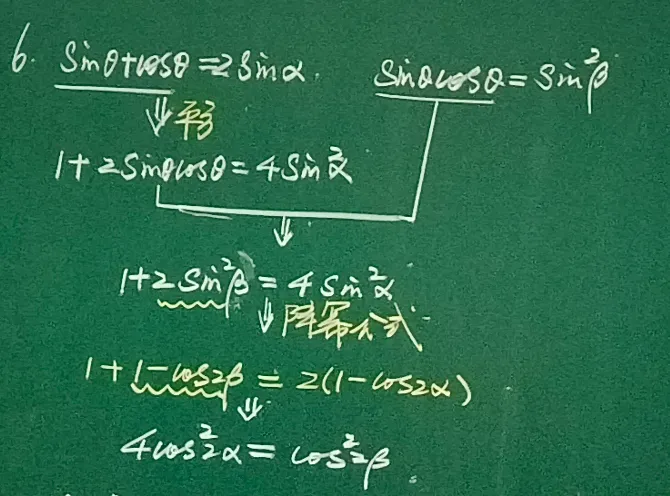 6. sinθ+cosθ=2sinα. sinθcosθ=sin²β
⇓ 平方
1+2sinθcosθ=4sin²α
⇓
1+2sin²β=4sin²α
⇓ 降幂公式
1+1-cos2β=2(1-cos2α)
⇓
4cos²2α=cos²2β.